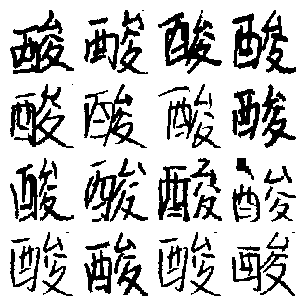 酸酸酸酸
酸酸酸酸
酸酸酸酸
酸酸酸酸